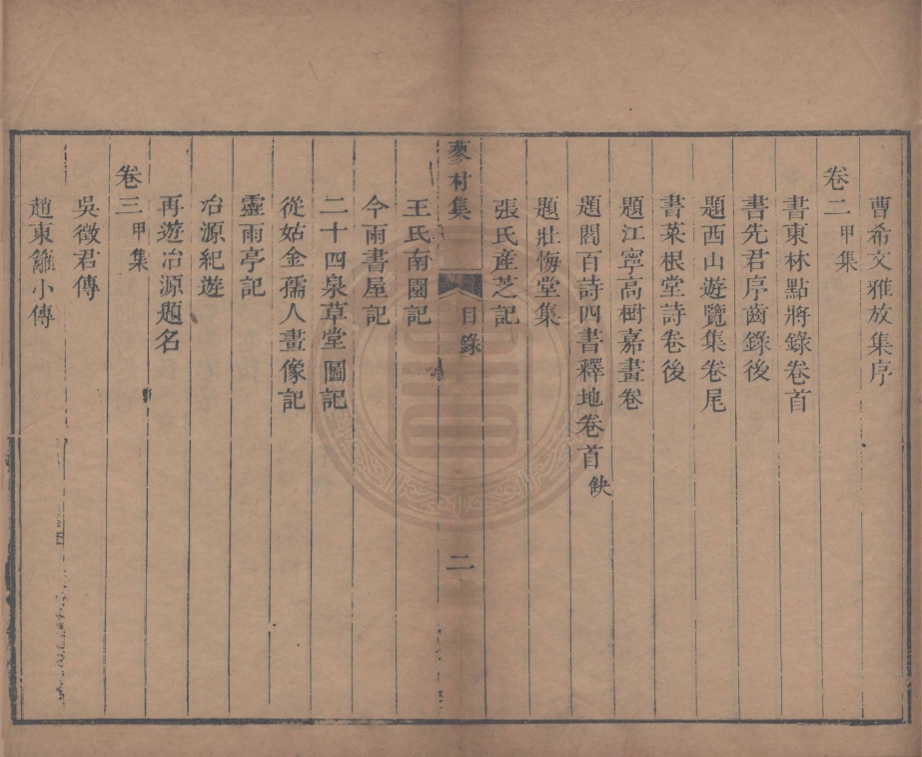 曹希文雅放集序
卷二甲集
書東林點將錄卷首
書先君序齒錄後
題西山遊覽集卷尾
書菜根堂詩卷後
題江寧高樹嘉畫卷
題閻百詩四書釋地卷首缺
題壯悔堂集
張氏產芝記
蓼村集 目錄 二
王氏南園記
今雨書屋記
二十四泉草堂圖記
從姑金孺人畫像記
靈雨亭記
冶源紀遊
再遊冶源題名
卷三甲集
吳徵君傳
趙東籬小傳